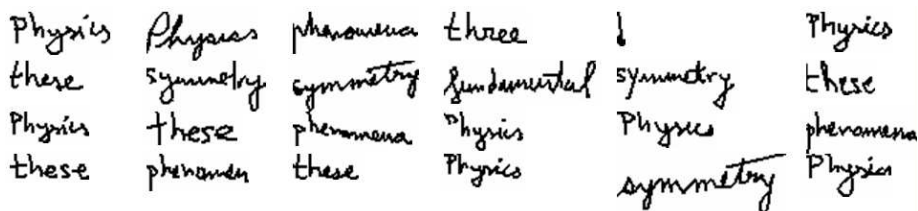 Physics Physics phenomena three Physics
these symmetry symmetry fundamental symmetry these
Physics these phenomena Physics Physics phenomena
these phenomen these Physics symmetry Physics